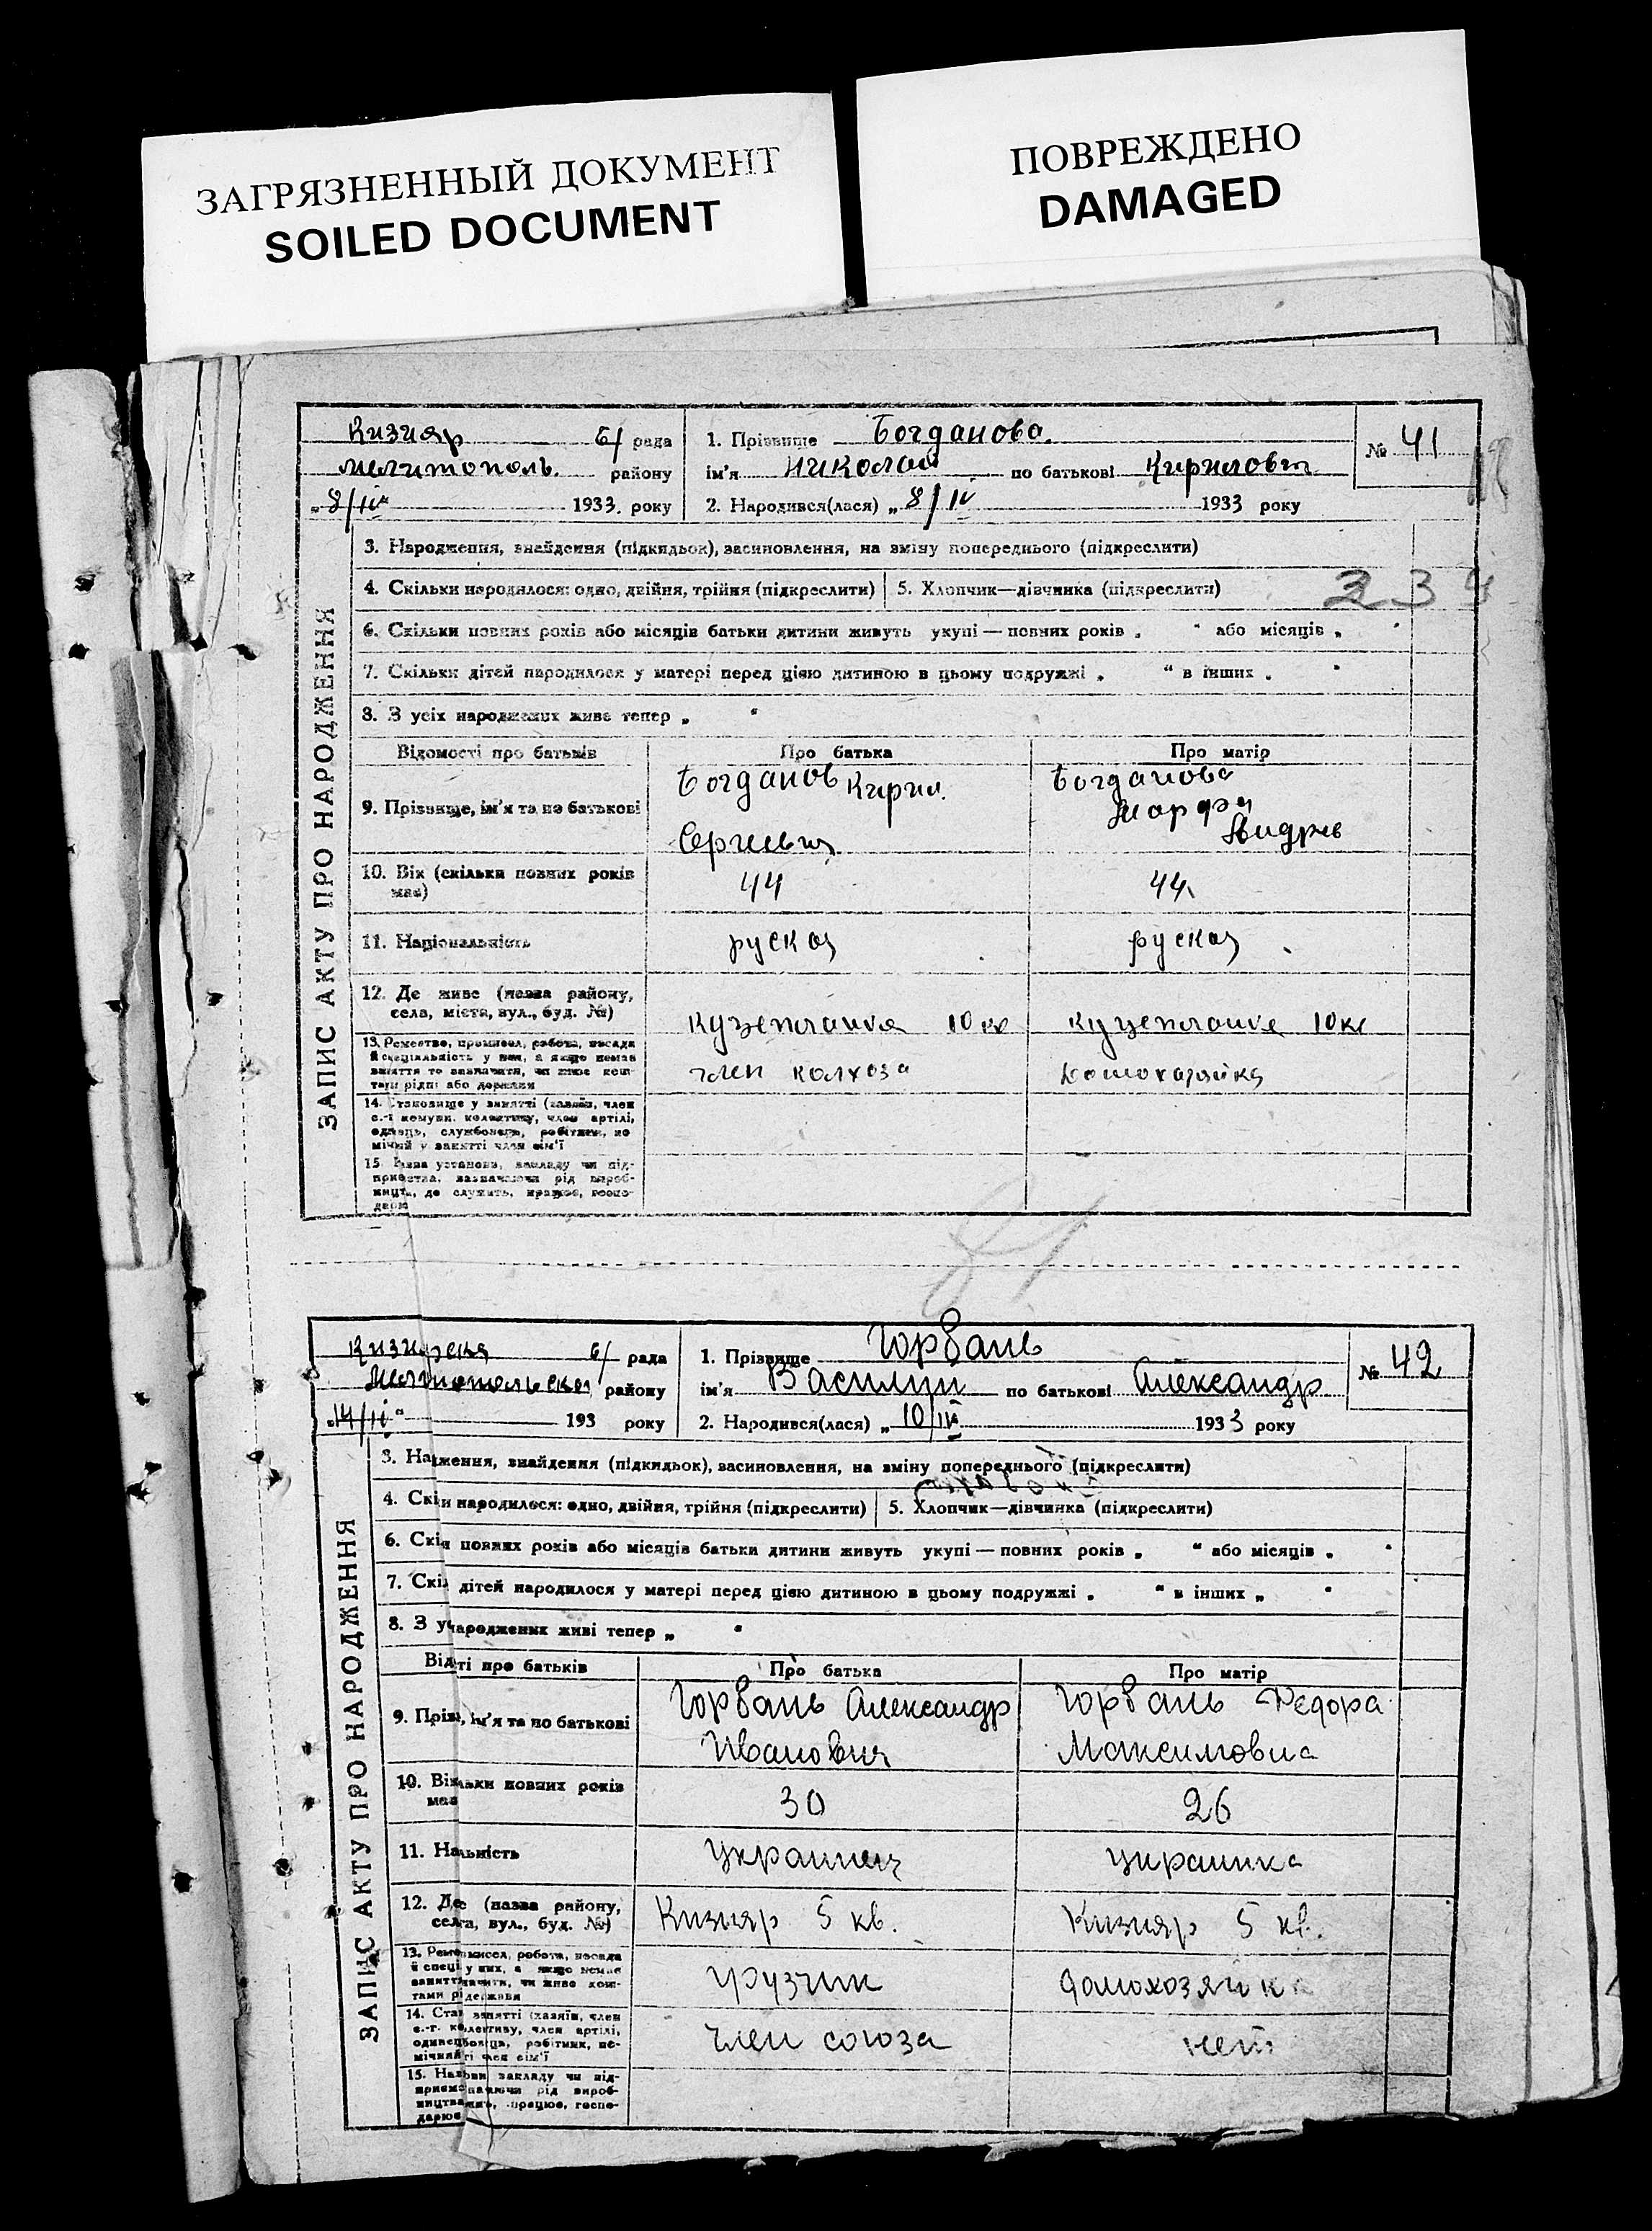 ЗАГРЯЗНЕННЫЙ ДОКУМЕНТ
SOILED DOCUMENT
ПОВРЕЖДЕНО
DAMAGED
Кизияр с/ рада
Мелитополь району
„8/IV" 1933 року
1. Прізвище Богданова
ім'я Николай по батькові Кирилович
2. Народився(лася) „8/IV 1933 року
№ 41
ЗАПИС АКТУ ПРО НАРОДЖЕННЯ
3. Народження, знайдення (підкидьок), засиновлення, на зміну попереднього (підкреслити)
4. Скільки народилося: одно, двійня, трійня (підкреслити) 5. Хлопчик—дівчинка (підкреслити)
234
6. Скільки повних років або місяців батьки дитини живуть укупі — повних років „ " або місяців „ "
7. Скільки дітей народилося у матері перед цією дитиною в цьому подружжі „ " в інших „ "
8. З усіх народжених живе тепер „ "
Відомості про батьків Про батька Про матір
9. Прізвище, ім'я та по батькові
Богданов Кирил
Богданова
Марфа
Андрев
10. Вік (скільки повних років має) 44 44
11. Національність руская руская
12. Де живе (назва району, села, міста, вул., буд. №)
10 кв 10 кв
13. Ремество, промисел, робота, посада й спеціальність у них, а якщо немає заняття то зазначити, чи живе коштами рідні або держави
член колхоза домохазяйка
14. Становище у занятті (хазяїн, член с.-г. комуни, колективу, член артілі, одинець, службовець, робітник, помічний у занятті член сім'ї
15. Назва установи, закладу чи підприємства, зазначаючи рід виробництв, де служить, працює, господарює
Кизирская с/ рада
Мелитопольскаи району
„14/IV" 193 року
1. Прізвище Горбань
ім'я Василий по батькові Александр
2. Народився(лася) „10/IV 1933 року
№ 42
ЗАПИС АКТУ ПРО НАРОДЖЕННЯ
3. На дження, знайдення (підкидьок), засиновлення, на зміну попереднього (підкреслити)
4. Скі и народилося: одно, двійня, трійня (підкреслити) 5. Хлопчик—дівчинка (підкреслити)
6. Скі повних років або місяців батьки дитини живуть укупі — повних років „ " або місяців „ "
7. Скі дітей народилося у матері перед цією дитиною в цьому подружжі „ " в інших „ "
8. З у народжених живі тепер „ "
Від ті про батьків Про батька Про матір
9. Пріз , ім'я та по батькові
Горбань Александр Горбань Федора
Ивановия Максимовна
10. Ві льки повних років має 30 26
11. На льність Украинец украинка
12. Де (назва району,
се а, вул., буд. №)
Кизияр 5 кв. Кизияр 5 кв.
13. Реме мисел, робота, посада
й спеці у них, а якщо немає
занятт начити, чи живе кош-
тами рі держави
грузчик домохозяйка
14. Ста занятті (хазяїн, член
с.-г. ко лективу, член артілі,
одинец бовець, робітник, по-
мічний ті член сім'ї
член союза нет
15. Наз ви закладу чи під-
приєм начаючи рід вироб-
ництва жить, працює, госпо-
дарює